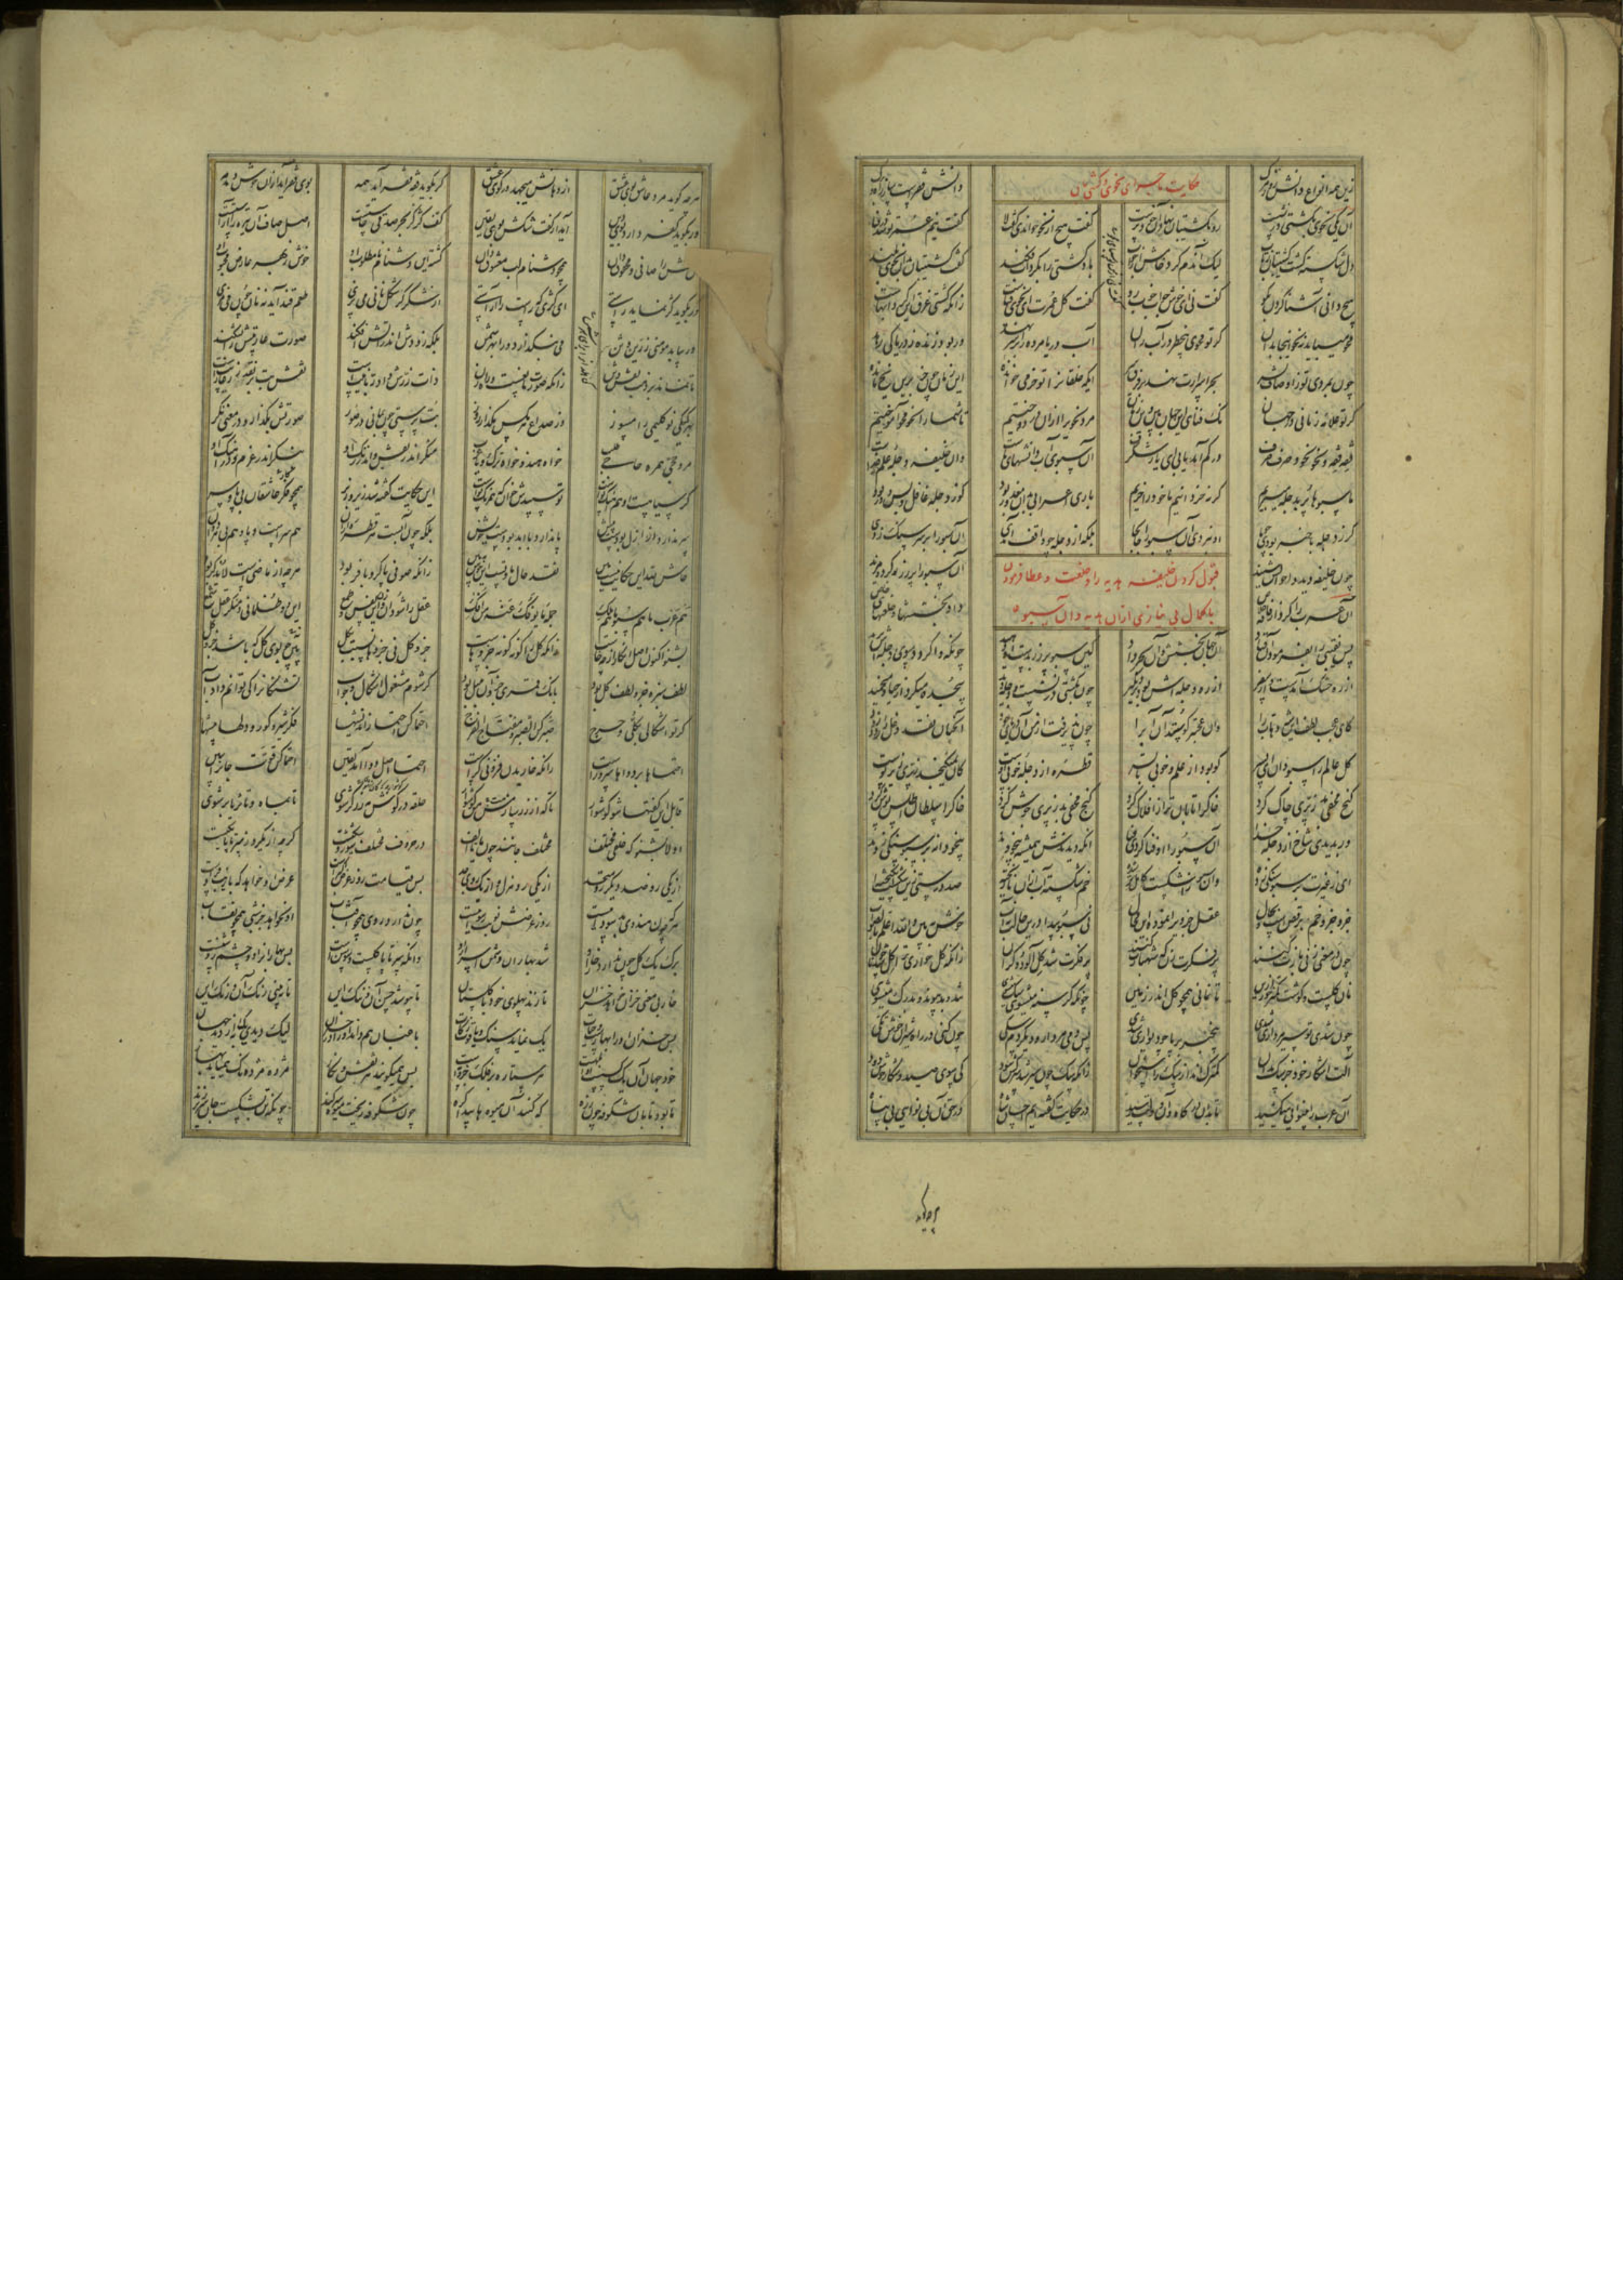 زین همه انواع دانش روز مرگ
دانش فقرست ساز راه و برگ
حکایت ماجرای نحوی و کشتیبان
آن یکی نحوی بکشتی در نشست رو بکشتیبان نهاد آن خودپرست گفت هیچ از نحو خواندی گفت لا گفت نیم عمر تو شد در فنا
دل شکسته گشت کشتیبان ز تاب لیک آندم کرد خامش از جواب باد کشتی را بگردابی فکند گفت کشتیبان بدان نحوی بلند
هیچ دانی آشنا کردن بگو گفت نی ای خوش جواب خوب رو گفت کل عمرت ای نحوی فناست زانکه کشتی غرق این گردابهاست
محو میباید نه نحو اینجا بدان گر تو محوی بیخطر در آب ران آب دریا مرده را بر سر نهد ور بود زنده ز دریا کی رهد
چون بمردی تو ز اوصاف بشر بحر اسرارت نهد بر فرق سر ایکه خلقانرا تو خر می خوانده این زمان چون خر برین یخ مانده
گر تو علامه زمانی در جهان نک فنای این جهان بین وین زمان مرد نحوی را ازان در دوختیم تا شما را نحو محو آموختیم
فقه فقه و نحو نحو و صرف صرف در کم آمد یابی ای یار شگرف آن سبوی آب دانشهای ماست وان خلیفه دجله علم خداست
ما سبوها پر بدجله میبریم گرنه خر دانیم ما خود را خریم باری اعرابی بدان معذور بود کو ز دجله غافل و بس دور بود
گر ز دجله با خبر بودی چو ما او نبردی آن سبو را جابجا بلکه از دجله چو واقف آمدی آن سبو را بر سر سنگی زدی
قبول کردن خلیفه هدیه را و خلعت و عطا فرمودن
با کمال بی نیازی ازان هدیه و آن سبو
چون خلیفه دید و احوالش شنید آن سبو را پر ز زر کرد و مزید
آن عرب را کرد از فاقه خلاص داد بخششها و خلعتهای خاص
پس نقیبی را بفرمود آن قباد آن جهان بخشش و آن بحر داد کین سبو پر زر بدست او دهید چونکه واگردد سوی دجله‌ش برید
از ره خشک آمدست و از سفر از ره دجله اش بود نزدیکتر چون بکشتی در نشست و دجله دید سجده میکرد از حیا و میخمید
کای عجب لطف این شه وهاب را وان عجبتر کو ستد آن آب را چون پذیرفت از من آن دریای جود آنچنان نقد دغل را زود زود
کل عالم را سبو دان ای پسر کو بود از علم و خوبی تا بسر قطره از دجله خوبی اوست کان نمیگنجد ز پری زیر پوست
گنج مخفی بد ز پری چاک کرد خاک را تابان تر از افلاک کرد گنج مخفی بد ز پری جوش کرد خاک را سلطان اطلس پوش کرد
ور بدیدی شاخی از دجله خدا آن سبو را او فنا کردی فنا آنکه دیدندش همیشه بیخودند بیخودانه بر سبو سنگی زدند
ای ز غیرت بر سبو سنگی زده وان سبو ز اشکست کاملتر شده خم شکسته آب ازان ناریخته صد درستی زین شکست انگیخته
جزو جزو خم برقصست و بحال عقل جزوی را نموده این محال نی سبو پیدا درین حالت نه آب خوش ببین والله اعلم بالصواب
چون در معنی زنی بازت کنند پر فکرت زن که شهبازت کنند پر فکرت شد گل آلود و گران زانکه گل خواری ترا گل شد چو نان
نان گلست و گوشت کمتر خور ازین تا نمانی همچو گل اندر زمین چونکه گرسنه میشوی سگ میشوی تند و بد پیوند و بدرگ میشوی
چون شدی تو سیر مرداری شدی بیخبر بی پا چو دیواری شدی پس دمی مردار و دیگر دم سگی چون کنی در راه شیران خوش تکی
آلت اشکار خود جز سگ مدان کمترک انداز سگ را استخوان زانکه سگ چون سیر شد سرکش شود کی سوی صید و شکار خوش دود
آن عرب را بینوایی میکشید تا بدان درگاه و آن دولت رسید در حکایت گفته ایم احسان شاه در حق آن بی نوای بی پناه
هرچه گوید مرد عاشق بوی عشق از دهانش میجهد در کوی عشق گر بگوید فقه فقر آید همه بوی فقر آید ازان خوش دمدمه
ور بگوید کفر دارد بوی دین آید از گفت شکش بوی یقین کف کژ کز بحر صدقی خاستست اصل صاف آن تیره را آراستست
آن کفش را صافی و محقوق دان همچو دشنام لب معشوق دان گشته این دشنام نامطلوب او خوش ز بهر عارض محبوب او
ور بگوید کژ نماید راستی ای کژی که راست را آراستی از شکر گر شکل نانی می پزی طعم قند آید نه نان چون می مزی
ور بیابد مومنی زرین وثن کی گذارد او را بهر شمن بلکه زود اندر آتش افکند صورت عاریتش را بشکند
تا نماند بر ذهب نقش وثن زانکه صورت مانعست و راهزن ذات زرش داد ربانیتست نقش بت بر نقد زر عاریتست
بهر کیکی تو گلیمی را مسوز وز صداع هر مگس مگذار روز بت پرستی چون بمانی در صور صورتش بگذار و در معنی نگر
مرد حجی همره حاجی طلب خواه هندو خواه ترک و یا عرب منگر اندر نقش و اندر رنگ او بنگر اندر عزم و در آهنگ او
گر سیاهست و هم آهنگ تو است تو سپیدش خوان که هم رنگ تو است این حکایت گفته شد زیر و زبر همچو فکر عاشقان بی پا و سر
سر ندارد کز ازل بودست پیش پا ندارد با ابد بودست خویش بلکه چون آبست هر قطره ازان هم سرست و پا و هم بی هر دوان
حاش لله این حکایت نیست هین نقد حال ما و تست این خوش ببین زانکه صوفی با کر و با فر بود هرچه آن ماضیست لا یذکر بود
هم عرب ما هم سبو ما هم ملک جمله ما یوفک عنه من افک عقل را شو دان و زن این نفس و طمع این دو ظلمانی و منکر عقل شمع
بشنو اکنون اصل انکار از چه خاست زانکه کل را گونه گونه جزوهاست جزو کل نی جزوها نسبت بکل نی چو بوی گل که باشد جزو گل
لطف سبزه جزو لطف گل بود بانگ قمری جزو آن بلبل بود گر شوم مشغول اشکال و جواب تشنگان را کی توانم داد آب
گر تو اشکالی بکلی و حرج صبر کن الصبر مفتاح الفرج احتما کن احتما ز اندیشها فکر شیر و گور و دلها بیشها
احتماها بر دواها سرورست زانکه خاریدن فزونی گرست احتما اصل دوا آمد یقین احتما کن قوت جان را ببین
قابل این گفتها شو گوش وار تا که از زر سازمت من گوشوار حلقه در گوش مه زرگر شوی تا بماه و تا ثریا بر شوی
اولا بشنو که خلق مختلف مختلف جانند چون یا تا الف در حروف مختلف شور و شکیست گرچه از یکرو ز سر تا پا یکیست
از یکی رو ضد و دیگر رو متحد از یکی رو هزل و از یک روی جد پس قیامت روز عرض اکبرست عرض او خواهد که با زیب و فرست
هر که چون هندوی بدسوداییست روز عرضش نوبت رسواییست چون ندارد روی همچون آفتاب او نخواهد جز شبی همچون نقاب
برگ یک گل چون ندارد خار او شد بهاران دشمن اسرار او وانکه سر تا پا گلست و سوسنست پس بهار او را دو چشم روشنست
خار بی معنی خزان خواهد خزان تا زند پهلوی خود با گلستان تا بپوشد حسن آن و ننگ این تا نبینی رنگ آن و زنگ این
پس خزان او را بهارست و حیات یک نماید سنگ و یاقوت زکات باغبان هم داند آن را در خزان لیک دید یک به از دید جهان
خود جهان آن یک کسست او ابلهست هر ستاره بر فلک جزو مهست پس همیگویند هر نقش و نگار مژده مژده نک همی آید بهار
تا بود تابان شکوفه چون زره کی کنند آن میوه ها پیدا گره چون شکوفه ریخت میوه سر کند چونکه تن بشکست جان سر بر زند